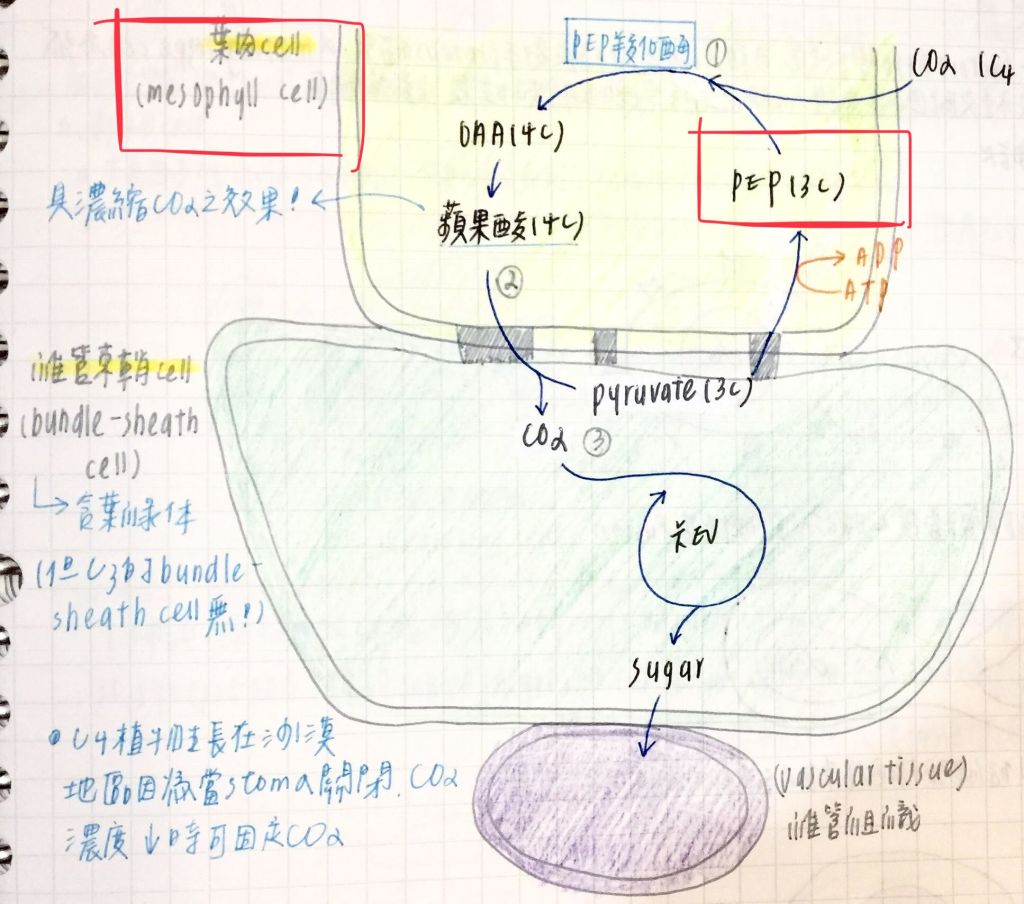 葉肉cell
(mesophyll cell)
PEP羧化酶 ①
CO2 (C4
OAA(4C)
PEP(3C)
具濃縮CO2之效果!
蘋果酸(4C)
②
ADP
ATP
維管束鞘cell
(bundle-sheath
cell)
pyruvate(3C)
CO2 ③
含葉綠体
(但C3的bundle-
sheath cell無!)
卡氏
sugar
• C4植物生長在沙漠
地區因為當stoma關閉, CO2
濃度↓時可固定CO2
(vascular tissue)
維管組織